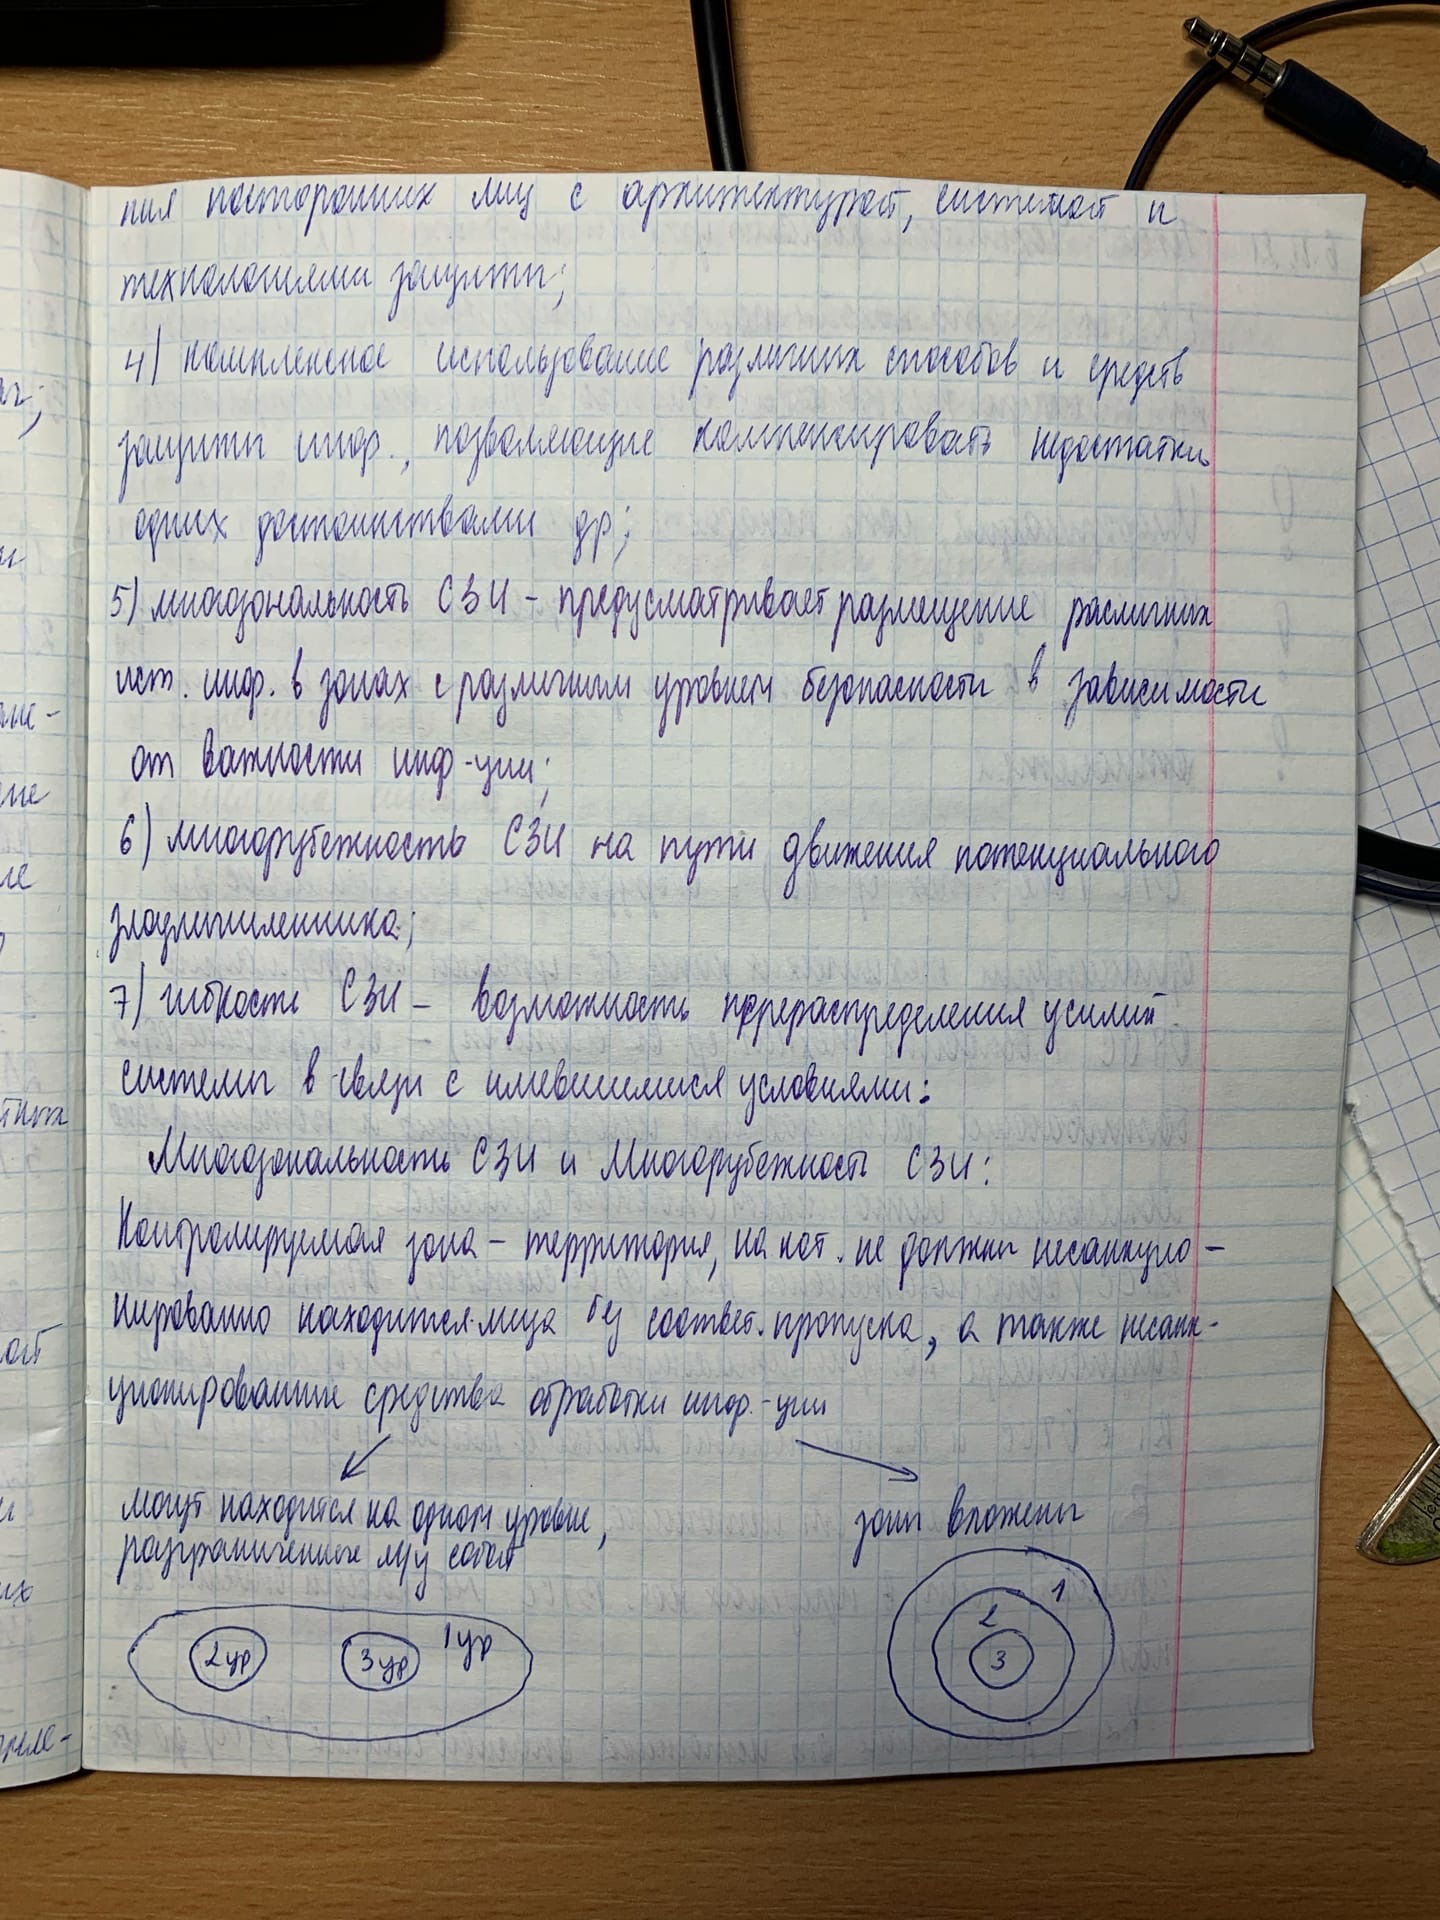 ния посторонних лиц с архитектурой, системой и
технологиями защиты;
4) комплексное использование различных способов и средств
защиты инф., позволяющие компенсировать недостатки
одних достоинствами др;
5) многозональность СЗИ – предусматривает размещение различных
ист. инф. в зонах с различным уровнем безопасности в зависимости
от важности инф-ции;
6) многорубежность СЗИ на пути движения потенциального
злоумышленника;
7) гибкость СЗИ – возможность перераспределения усилий
системы в связи с имевшимися условиями:
Многозональность СЗИ и Многорубежность СЗИ:
Контролируемая зона – территория, на кот. не должны несанкцио-
нированно находится лица без соответ. пропуска, а также несанк-
ционированные средства обработки инф.-ции
могут находится на одном уровне,
разграниченные м/у собой
зоны вложены
2 ур
3 ур
1 ур
1
2
3